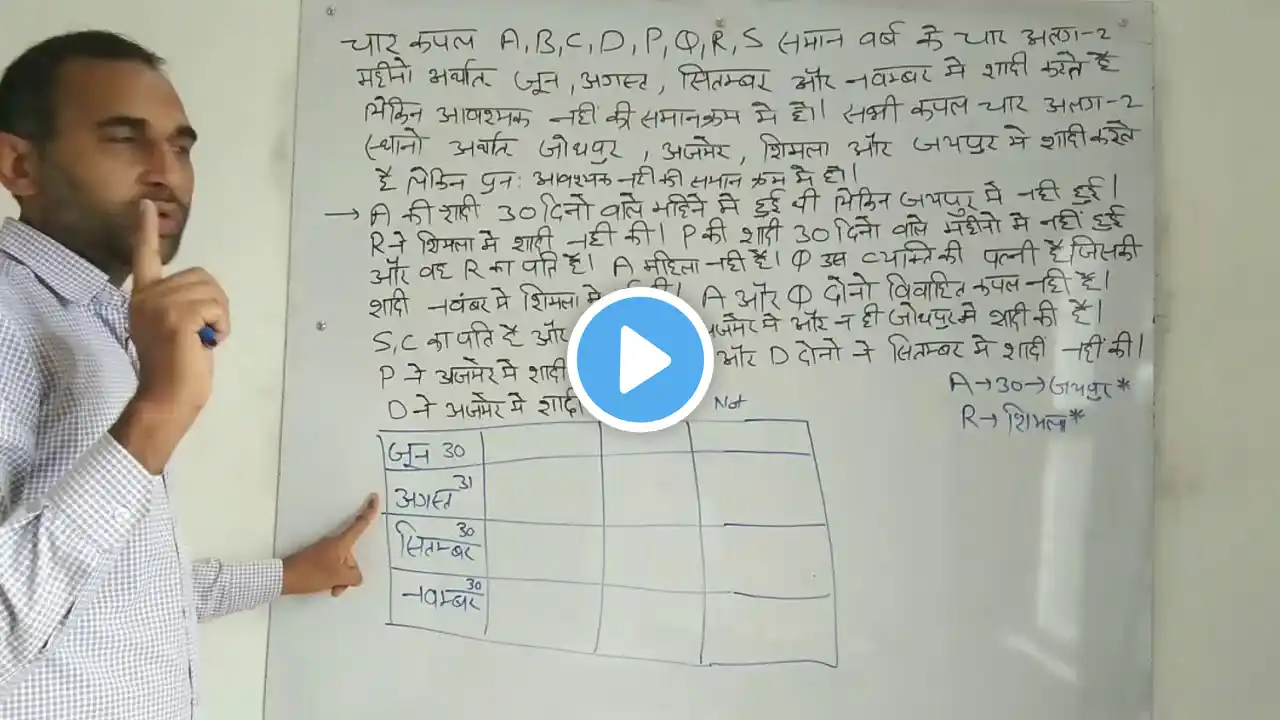 चार कपल A,B,C,D,P,Q,R,S समान वर्ष के चार अलग-2
महीनो अर्थात जून,अगस्त, सितम्बर और नवम्बर मे शादी करते है
लेकिन आवश्यक नहीं की समानक्रम मे हो। सभी कपल चार अलग-2
स्थानो अर्थात जोधपुर, अजमेर, शिमला और जयपुर मे शादी करते
है लेकिन पुन: आवश्यक नही की समान क्रम मे हो।
→ A की शादी 30 दिनो वाले महिने मे हुई थी लेकिन जयपुर मे नही हुई।
R ने शिमला मे शादी नही की। P की शादी 30 दिनो वाले महीनो मे नहीं हुई
और वह R का पति है। A महिला नही है। Q उस व्यक्ति की पत्नी है जिसकी
शादी नवंबर मे शिमला मे A और Q दोनो विवाहित कपल नही है।
S,C का पति है और अजमेर मे और न ही जोधपुर मे शादी की है।
P ने अजमेर मे शादी और D दोनो ने सितम्बर मे शादी नही की।
D ने अजमेर मे शादी
A→30→जयपुर*
R→शिमला*
Not
जून 30
अगस्त 31
सितम्बर 30
नवम्बर 30